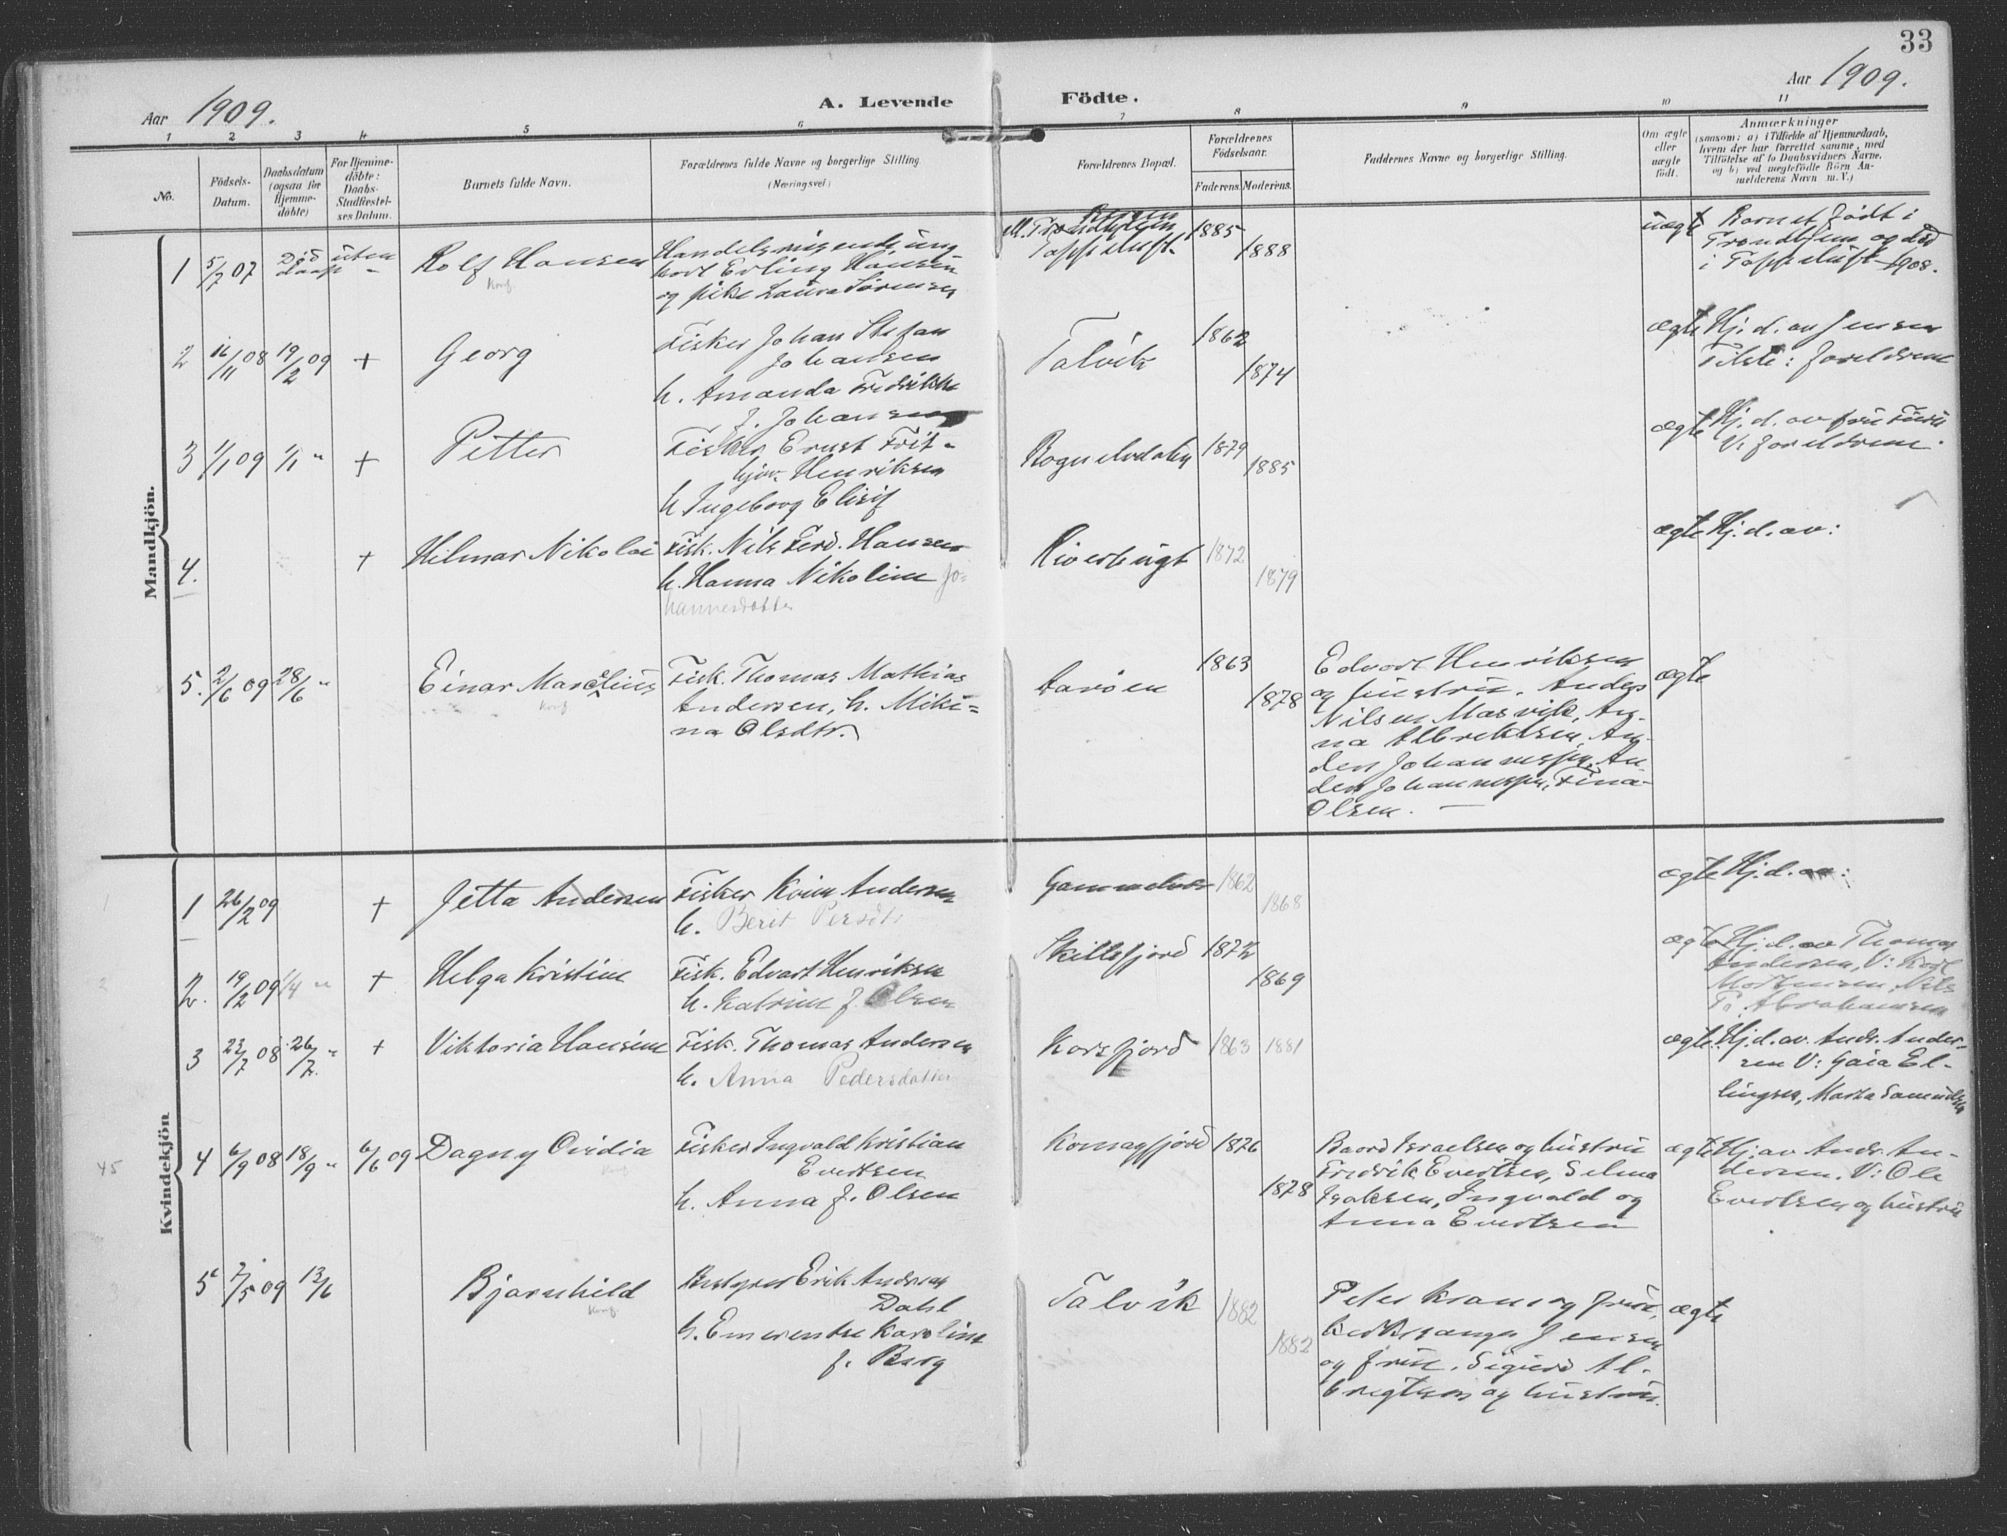 33
Aar 1909.
A. Levende Födte.
Aar 1909.
1 2 3 4 5 6 7 8 9 10 11
No.
Födsels-Datum.
Daabsdatum (ogsaa for Hjemme-döbte)
For Hjemme-döbte: Daabs-Stadfæstel-ses Datum.
Barnets fulde Navn.
Forældrenes fulde Navne og borgerlige Stilling.
(Næringsvei.)
Forældrenes Bopæl.
Forældrenes Födselsaar.
Faderens. Moderens.
Faddernes Navne og borgerlige Stilling.
Om ægte eller uægte födt.
Anmærkninger
(saasom: a) i Tilfælde af Hjemmedaab, hvem der har forrettet samme, med Tilföielse af to Daabsvidners Navne, og b) ved uægtefödte Börn An-melderens Navn m. V.)
Mandkjön.
1 5/7 07 Död uten daab Rolf Hansen
Handelsreisende ung-
karl Erling Hansen
og pike Laura Sörensen
Trondhjem
Tappeluft
1885 1888
uægte
Barnet födt i
Trondhjem og död
i Tappeluft 1908.
2 16/11 08 19/2 09 + Georg
Fisker Johan Stefan
Johansen
h. Amanda Fredrikke
f. Johansen
Talvik
1862 1874
ægte
Hj. d. av Jensen
: foreldrene
3 1/1 09 1/1 " + Petter
Fisker Ernst Frit-
hjov Henriksen
h Ingeborg Elisif
1879 1885
ægte
Hj. d. av fru
V: foreldrene.
4. + Hilmar Nikolai
Fisk. Nils Ferd. Hansen
h. Hanna Nikoline Jo-
hannesdotter
Riverbugt
1872 1879
ægte
Hj. d. av:
5. 2/6 09 28/6 " Einar Marcelius
Fisk. Thomas Mathias
Andersen, h. Miki=
na Olsdtr.
Aaröen
1863 1878
Edvart Henriksen
og hustru. Anders
Nilsen Masvik, An-
na Albrektsen, An-
ders Johannessen, An-
ders Johannessen, Fina
Olsen. —
ægte
Kvindekjön
1 26/2 09 + Jetta Andersen
Fisker Andersen
h. Berit Persdtr
1862 1868
ægte
Hj. d. av:
2. 19/2 09 1/4 " + Helga Kristine
Fisk. Edvart Henriksen
h. Katrine f. Olsen
Skillefjord
1872 1869
ægte
Hj. d. av Thomas
Andersen, V: Karl
Mortensen, Nils
Abrahamsen
3 23/7 08 26/7 " + Viktoria Hansine
Fisk. Thomas Andersen
h. Anna Pedersdatter
Korsfjord
1863 1881
ægte
Hj. d. av Andr. Ander-
sen V: Gaia El-
lingsen, Marta Samuelsen
45
4 6/9 08 18/9 " 6/6 09 Dagny Ovidia
Fisker Ingvald Kristian
Evertsen
h. Anna f. Olsen
Komagfjord
1876 1878
Baard Israelsen og hustru
Fredrik Evertsen, Selma
Isaksen, Ingvald og
Anna Evertsen
ægte
Hj. av Andr. An-
dersen. V: Ole
Evertsen og hustru
5 7/5 09 13/6 Bjarnhild
Erik Andreas
Dahl
h. Emerentse Karoline
f. Berg
Talvik
1882 1882
Peter og frue,
Kirkesanger Jensen
og frue. Sigurd Al-
brigtsen og hustru.
ægte